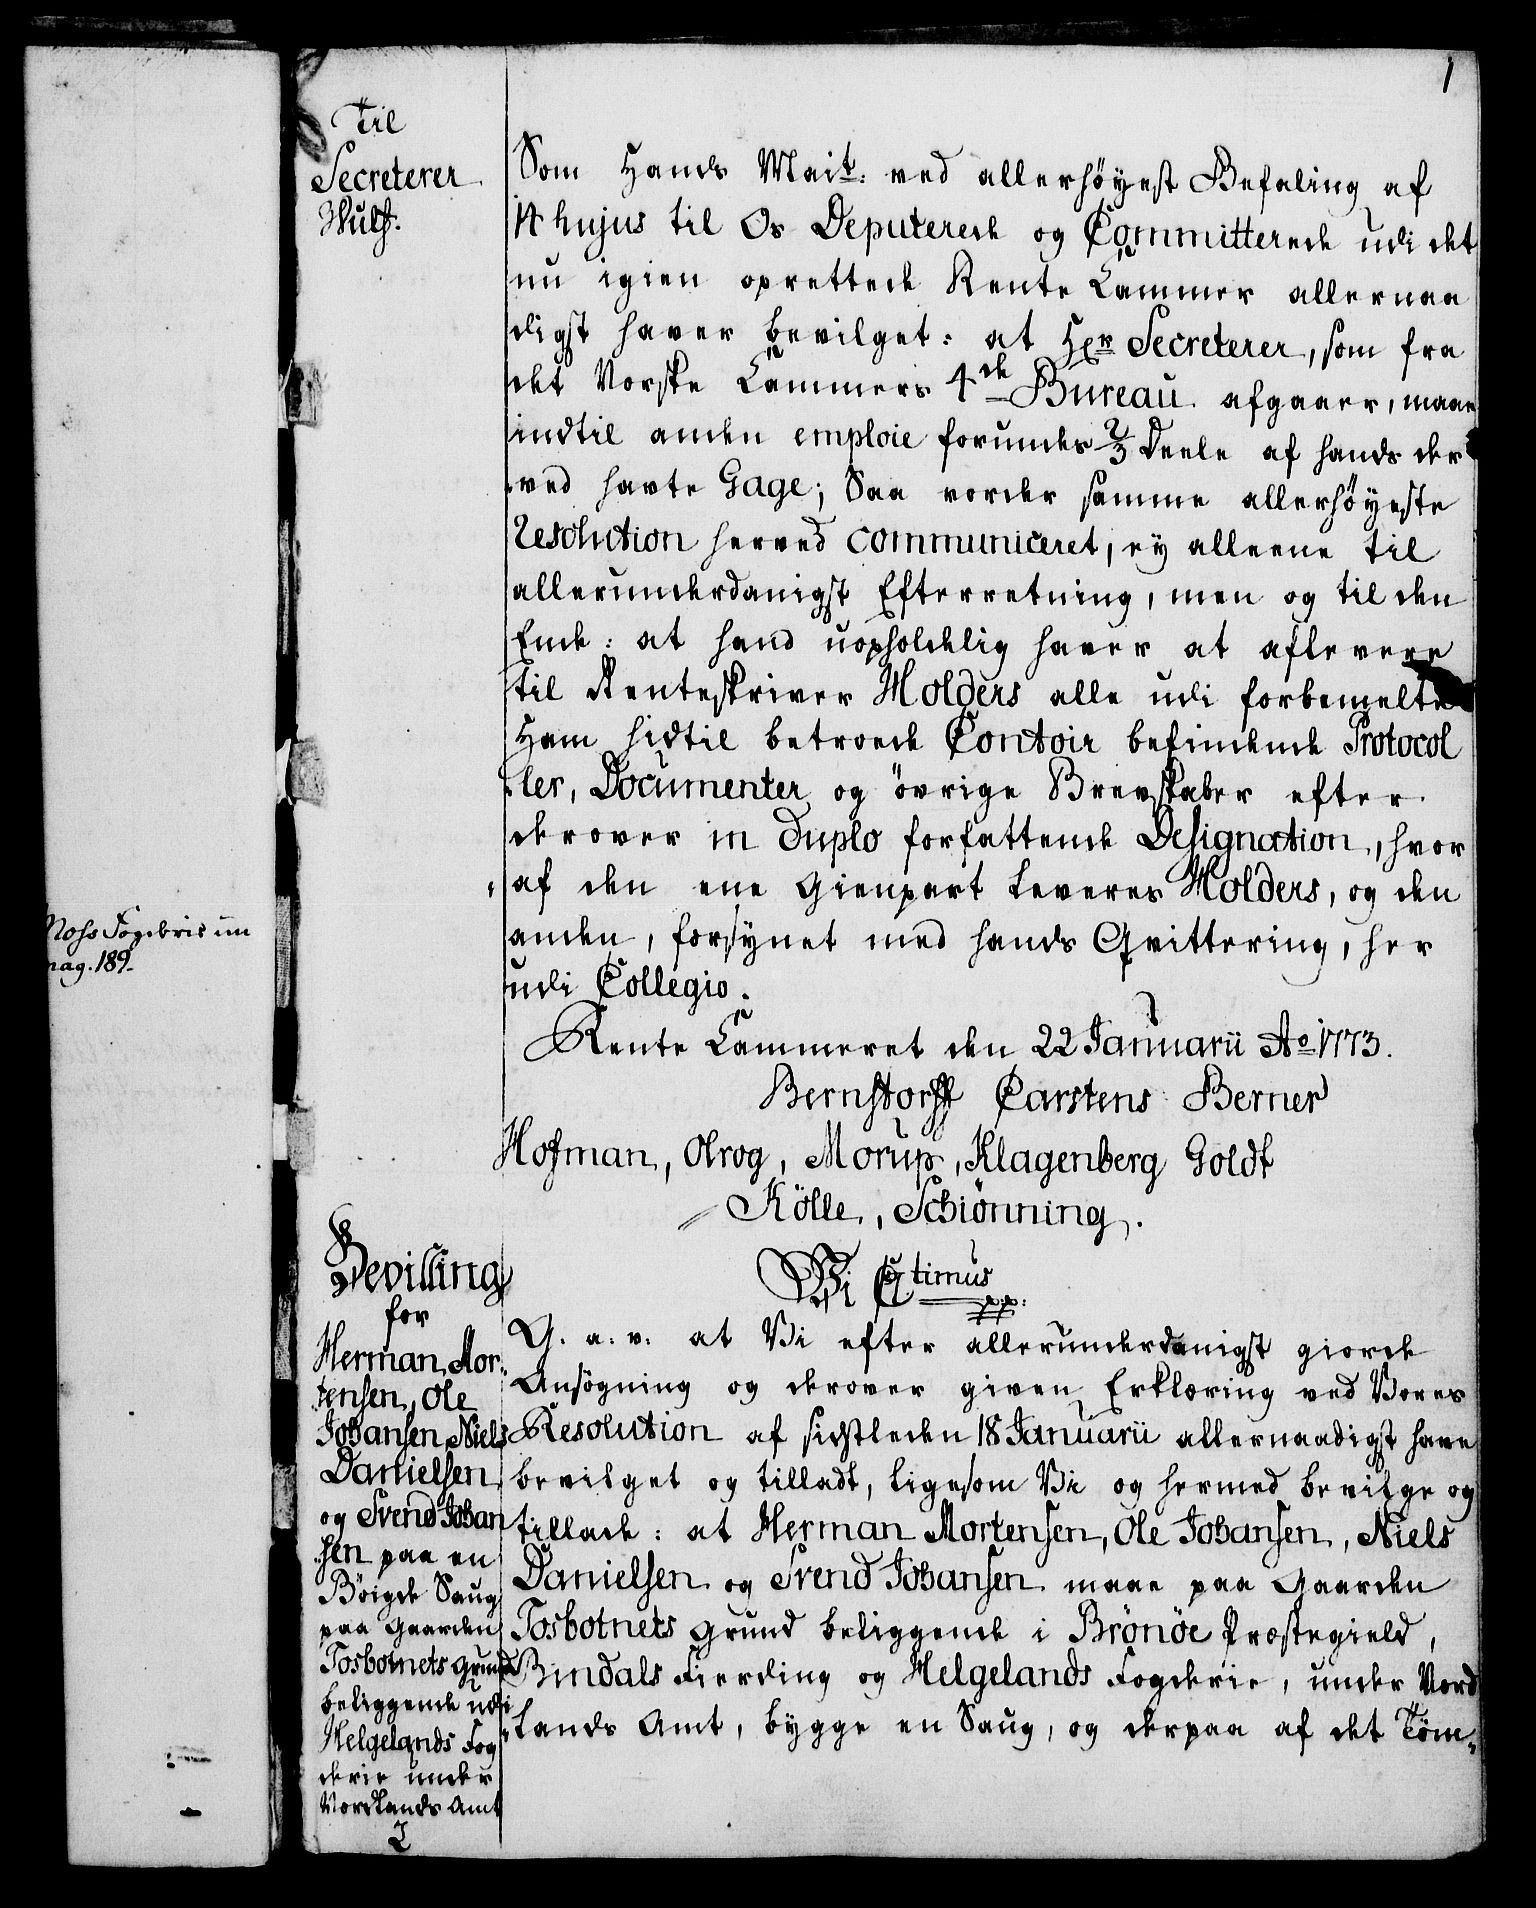 1
Til
Secreterer
Wulf.
Som Hands Mait: ved allerhöyest Befaling af
14 hujus til Os Deputerede og Committerede udi det
nu igien oprettede Rente Cammer allernaa
digst haver bevilget: at Hr Secreterer, som fra
det Norske Cammers 4de Bureau afgaaer, maae
indtil anden emploie forundes 2/3 Deele af hands der
ved havte Gage; Saa vorder samme allerhöyeste
Resolution herved communiceret, ey alleene til
allerunderdanigst Efterretning, men og til den
Ende: at hand uopholdelig haver at aflevere
til Renteskriver Molders alle udi forbemelte
Ham hidtil betroede Contoir befindende Protocol
ler, Documenter og övrige Brevskaber efter
derover in duplo forfattende Designation, hvor
af den ene Gienpart leveres Molders, og den
anden, forsynet med hands Qvittering, her
udi Collegio.
Rente Cammeret den 22 Januarii Ao 1773.
Bernstorff Carstens Berner
Hofman, Olrog, Morup, Klagenberg Goldt
Kölle, Schiönning.
Bevilling
for
Herman Mor-
tensen, Ole
Johansen, Niels
Danielsen
og Svend Johan
sen paa en
Böigde Saug
paa Gaarden
Tosbotnets Grund
beliggende udi
Helgelands Fog
derie under
Nordlands Amt
Vi Ctimus
pp:
G. a. v. at Vi efter allerunderdanigst giorde
Ansögning og derover given Erklæring ved Vores
Resolution af sidstleden 18 Januarii allernaadigst have
bevilget og tilladt, ligesom Vi og hermed bevilge og
tillade: at Herman Mortensen, Ole Johansen, Niels
Danielsen og Svend Johansen maae paa Gaarden
Tosbotnets Grund beliggende i Brönöe Præstegield,
Bindals Fierding og Helgelands Fogderie, under Nord
lands Amt, bygge en Saug, og derpaa af det Töm-
Moss Fogderie im
pag. 189.